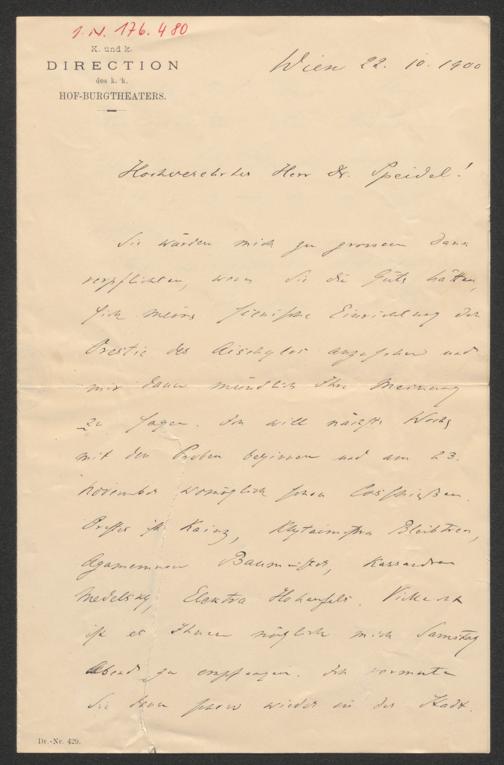 I.N. 176.480
K. und k.
DIRECTION
des k. k.
HOF-BURGTHEATERS.
Wien 22. 10. 1900
Hochverehrter Herr Dr. Speidel!
Sie würden mich zu grossem Dank
verpflichten, wenn Sie die Güte hätten,
sich meine scenische Einrichtung der
Orestie des Aischylos anzusehen und
mir dann mündlich Ihre Meinung
zu sagen. Ich will nächste Woche
mit den Proben beginnen und am 23.
November womöglich schon losschießen.
Orestes ist Kainz, Klytaimestra Bleibtreu,
Agamemnon Baumeister, Kassandra
Medelsky, Elektra Hohenfels. Vielleicht
ist es Ihnen möglich mich Samstag
Abend zu empfangen. Ich vermute
Sie dann schon wieder in der Stadt.
Dr.-Nr. 429.